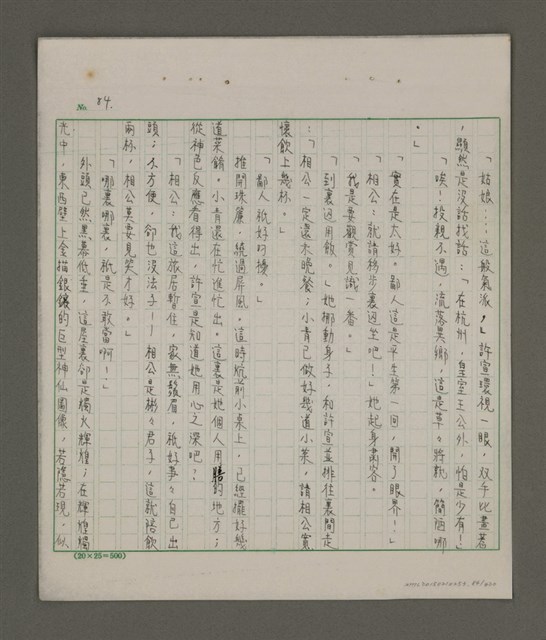 No. 84.
「姑娘……這般氣派，」許宣環視一眼，双手比畫著
，顯然是沒話找話：「在杭州，皇室王公外，怕是少有！」
「唉！投親不遇，流落異鄉，這是草々將就，簡陋哪
。」
「實在是太好。鄙人這是平生第一回，開了眼界！」
「相公：就請移步裏邊坐吧！」她起身肅客。
「我是要觀賞見識一番。」
「到裏邊用飲。」她挪動身子，和許宣並排往裏間走
：「相公一定還未晚餐；小青已做好幾道小菜，請相公寬
懷飲上幾杯。」
「鄙人祇好叨擾。」
推開珠簾，繞過屏風。這時炕前小桌上，已經擺好幾
道菜餚。小青還在忙進忙出。這裏是她個人用膳的地方；
從神色反應看得出，許宣是知道她用心之深吧？
「相公：我這旅居暫住，家無鬚眉，祇好事々自己出
頭；不方便，卻也沒法子！—相公是彬々君子，這就陪飲
兩杯，相公莫要見笑才好。」
「哪裏哪裏，祇是不敢當啊！」
外頭已然黑幕低垂，這屋裏卻是燭火輝煌；在輝煌燭
光中，東西壁上金描銀鑲的巨型神仙圖像，若隱若現，似
(20×25=500)